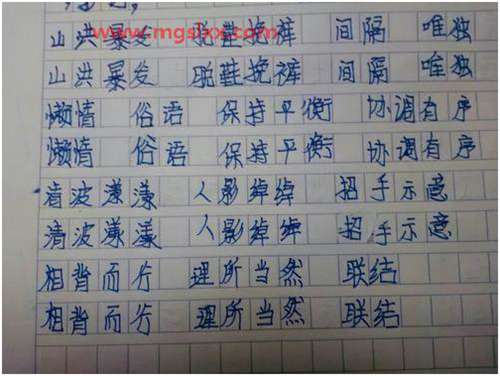 山洪暴发 脱鞋挽裤 间隔 唯独
www.mgsbxx.com
山洪暴发 脱鞋挽裤 间隔 唯独
懒惰 俗语 保持平衡 协调有序
懒惰 俗语 保持平衡 协调有序
清波漾漾 人影绰绰 招手示意
清波漾漾 人影绰绰 招手示意
相背而行 理所当然 联结
相背而行 理所当然 联结